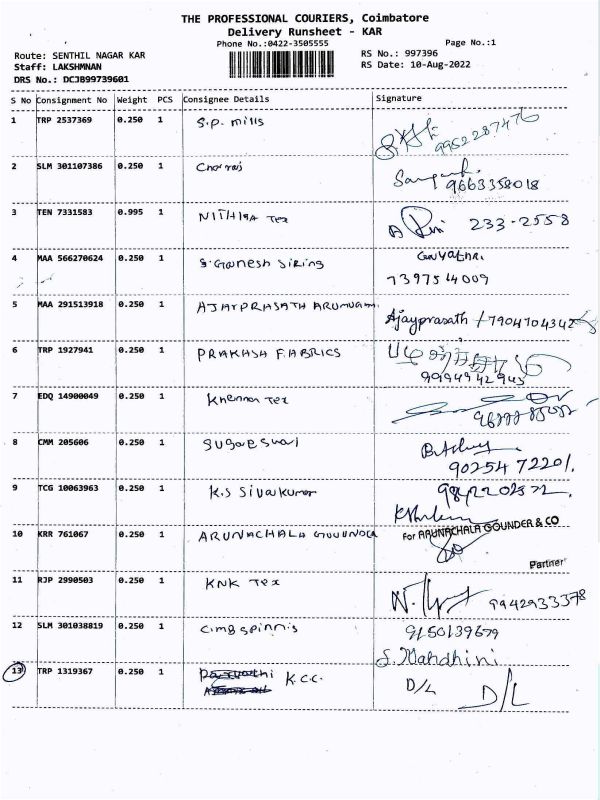 THE PROFESSIONAL COURIERS, Coimbatore
Delivery Runsheet - KAR
Phone No.:0422-3505555
Page No.:1
Route: SENTHIL NAGAR KAR
RS No.: 997396
Staff: LAKSHMNAN
RS Date: 10-Aug-2022
DRS No.: DCJB99739601
S No Consignment No Weight PCS Consignee Details Signature
1 TRP 2537369 0.250 1 S.P. mills
9952287476
2 SLM 301107386 0.250 1
9663358018
3 TEN 7331583 0.995 1 NITHISA Tex 233-2558
4 MAA 566270624 0.250 1 S. Gganesh Siring Gayathri.
7397514009
5 MAA 291513918 0.250 1 AJAYPRASATH ARUMUGAM
Ajayprasath / 7904704342
6 TRP 1927941 0.250 1 PRAKASH FABRICS
9994942943
7 EDQ 14900049 0.250 1 Khennan Tex
8 CMM 205606 0.250 1
90254 72201.
9 TCG 10063963 0.250 1 K.S Sivakumar
10 KRR 761067 0.250 1 ARUNACHALA GOUUNDER
For ARUNACHALA GOUNDER & CO
Partner
11 RJP 2990503 0.250 1 KNK Tex
9942933378
12 SLM 301038819 0.250 1 9150139679
S. Nandhini
13 TRP 1319367 0.250 1 K.C.C.
D/L D/L